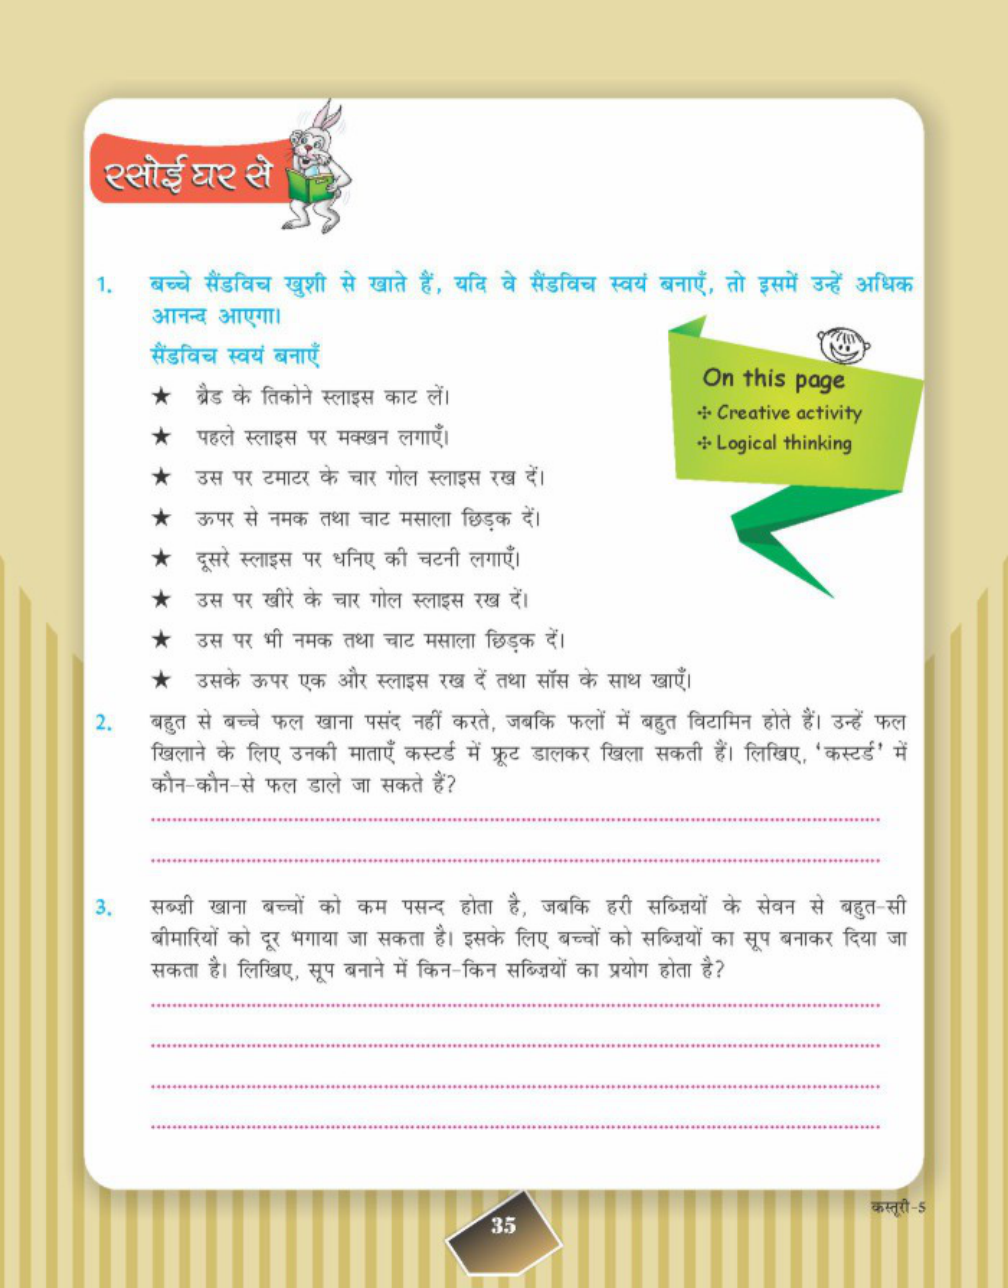 रसोई घर से
1. बच्चे सैंडविच खुशी से खाते हैं, यदि वे सैंडविच स्वयं बनाएँ, तो इसमें उन्हें अधिक
आनन्द आएगा।
सैंडविच स्वयं बनाएँ
★ ब्रैड के तिकोने स्लाइस काट लें।
★ पहले स्लाइस पर मक्खन लगाएँ।
★ उस पर टमाटर के चार गोल स्लाइस रख दें।
★ ऊपर से नमक तथा चाट मसाला छिड़क दें।
★ दूसरे स्लाइस पर धनिए की चटनी लगाएँ।
★ उस पर खीरे के चार गोल स्लाइस रख दें।
★ उस पर भी नमक तथा चाट मसाला छिड़क दें।
★ उसके ऊपर एक और स्लाइस रख दें तथा सॉस के साथ खाएँ।
On this page
✣ Creative activity
✣ Logical thinking
2. बहुत से बच्चे फल खाना पसंद नहीं करते, जबकि फलों में बहुत विटामिन होते हैं। उन्हें फल
खिलाने के लिए उनकी माताएँ कस्टर्ड में फ्रूट डालकर खिला सकती हैं। लिखिए, ‘कस्टर्ड’ में
कौन-कौन-से फल डाले जा सकते हैं?
3. सब्ज़ी खाना बच्चों को कम पसन्द होता है, जबकि हरी सब्ज़ियों के सेवन से बहुत-सी
बीमारियों को दूर भगाया जा सकता है। इसके लिए बच्चों को सब्ज़ियों का सूप बनाकर दिया जा
सकता है। लिखिए, सूप बनाने में किन-किन सब्ज़ियों का प्रयोग होता है?
कस्तूरी-5
35